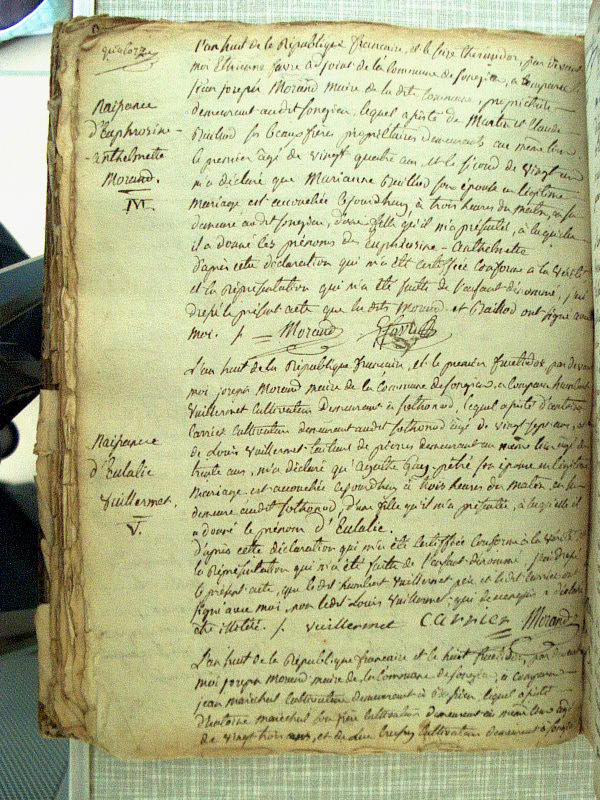 quatorze
Naissance
d'Euphrosine-
anthelmette
Morand.
IV.
L'an huit de la République francaise, et le seize thermidor, par devant
moi Etienne favre adjoint de la Commune de songieu, a comparu
jean joseph Morand maire de la dite Commune, propriétaire
demeurant audit songieu, lequel assisté de Martin et Claude
Baillod ses beaux freres propriétaires demeurants au même lieu
le premier agé de vingt quatre ans, et le second de vingt un
m'a déclaré que Marianne Baillod son épouse en légitime
mariage est accouchée cejourd'huy, à trois heures du matin, en sa
demeure audit songieu, d'une fille qu'il m'a présentée, à laquelle
il a donné les prénoms de Euphrosine - Anthelmette
d'après cette déclaration qui m'a été certifiée conforme à la vérité
et la représentation qui m'a été faite de l'enfant dénommé, j'ai
dressé le présent acte que les dits Morand et Baillod ont signé avec
moi. Morand
Naissance
d'Eulalie
Vuillermet.
V.
L'an huit de la République francaise, et le premier fructidor, par devant
moi joseph Morand maire de la Commune de songieu, a comparu humbert
Vuillermet Cultivateur demeurant à sothonod, lequel assisté d'antoine
Carrier Cultivateur demeurant audit sothonod agé de vingt sept ans, et
de Louis Vuillermet tailleur de pierres demeurant au même lieu agé de
trente ans, m'a déclaré qu' son épouse en légitime
mariage est accouchée cejourd'huy à trois heures du matin, en sa
demeure audit sothonod, d'une fille qu'il m'a présentée, à laquelle il
a donné le prénom d'Eulalie.
d'après cette déclaration qui m'a été certifiée conforme à la vérité et
la représentation qui m'a été faite de l'enfant dénommé j'ai dressé
le présent acte, que ledit humbert Vuillermet père et ledit Carrier ont
signé avec moi, non ledit Louis Vuillermet qui de ce requis a déclaré
être illétéré. vuillermet carrier Morand
L'an huit de la République francaise et le huit fructidor, par devant
moi joseph Morand maire de la Commune de songieu, a comparu
jean maréchal cultivateur demeurant à lequel assisté
d'antoine maréchal son père Cultivateur demeurant au même lieu agé
de vingt trois ans, et de Cultivateur demeurant à songieu